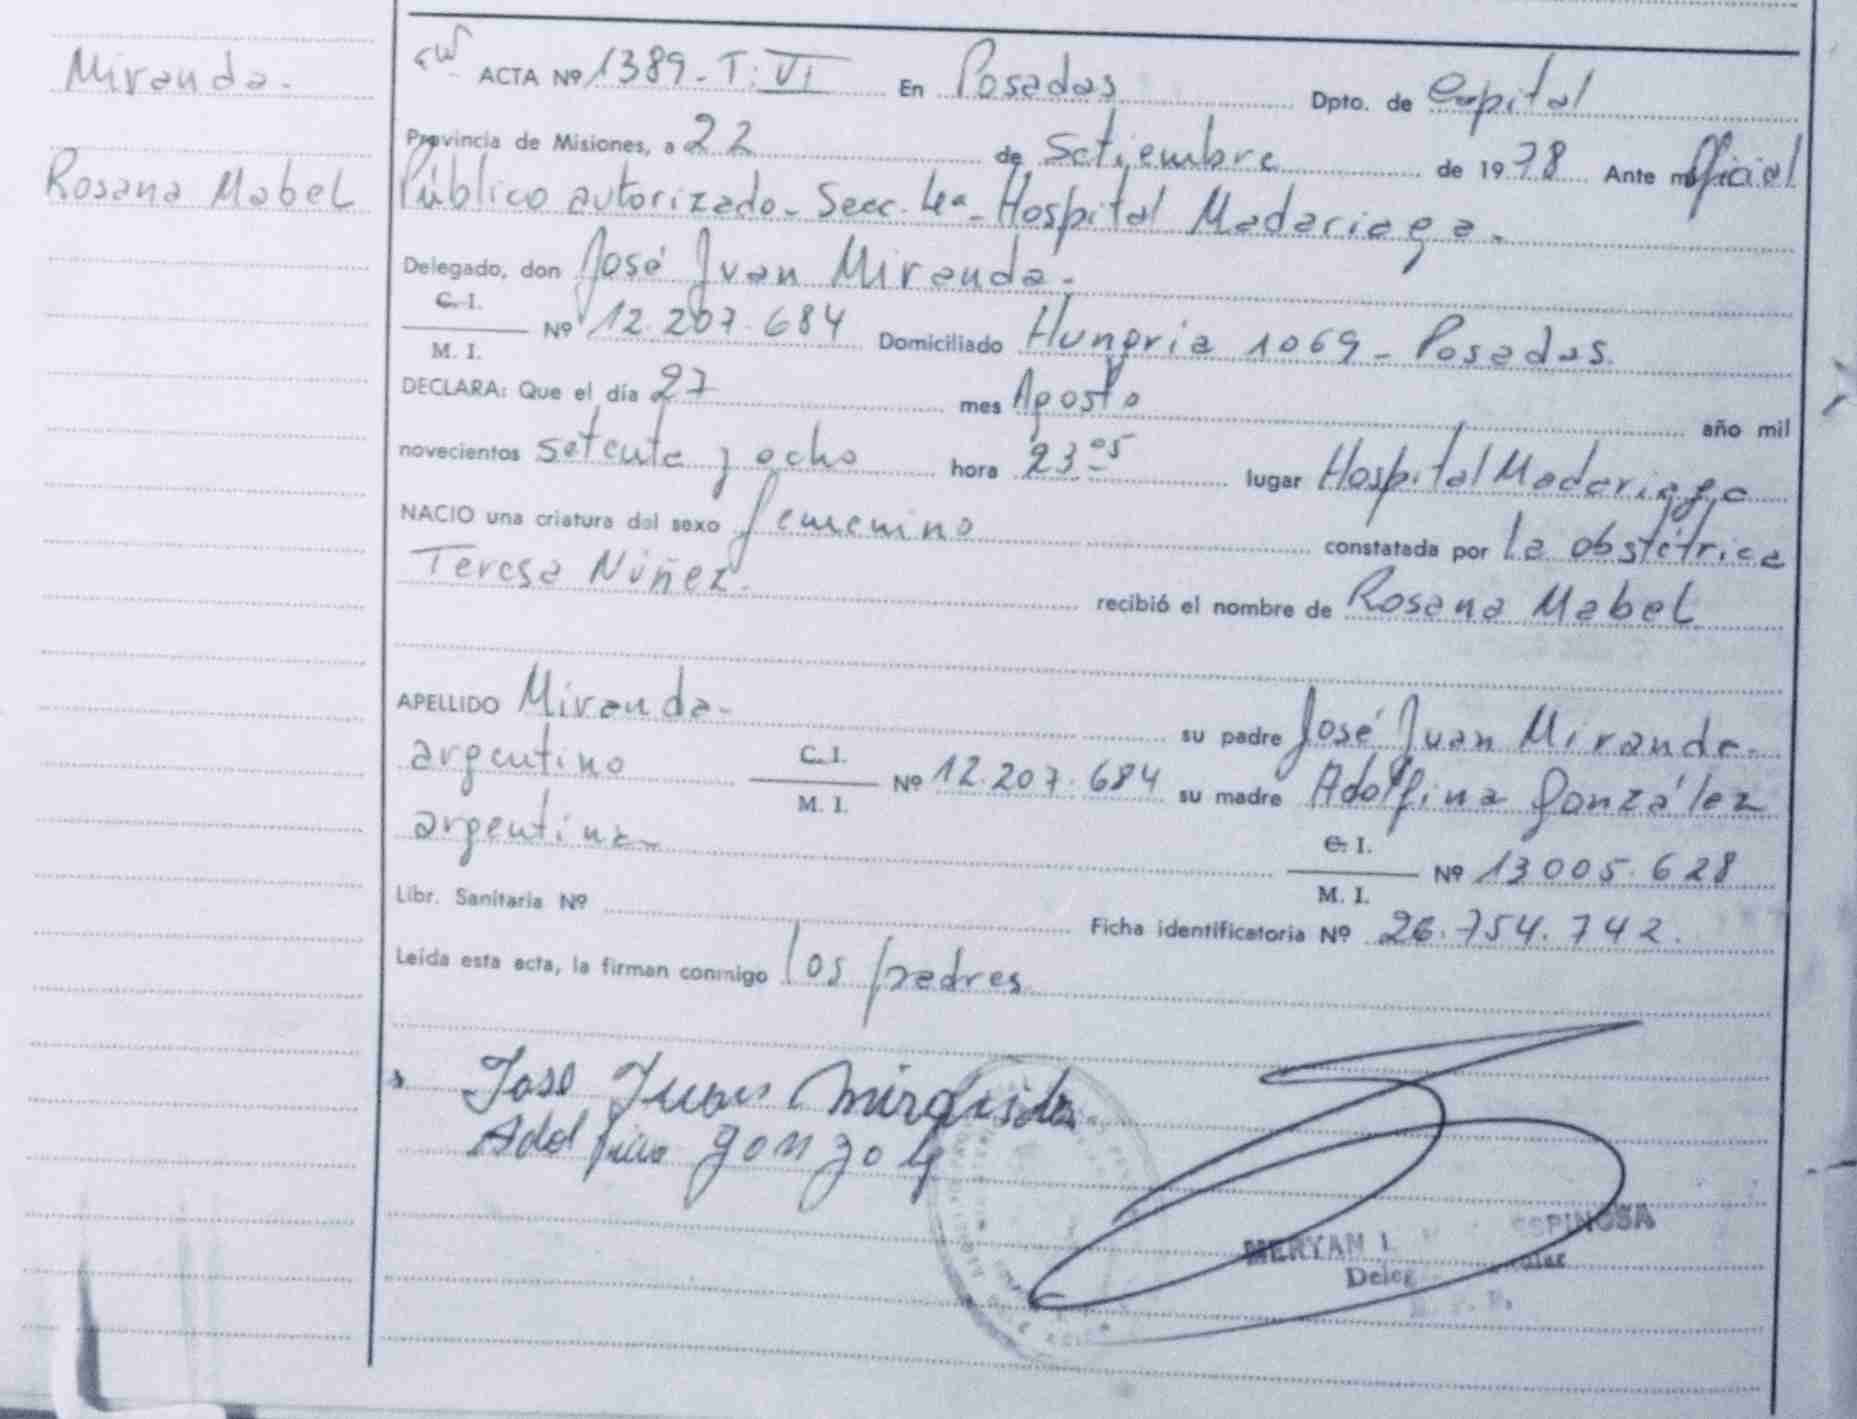 Miranda.
Rosana Mabel
ACTA Nº 1389 - T: VI En Posadas Dpto. de Capital
Provincia de Misiones, a 22 de Setiembre de 1978 Ante mi Oficial
Público autorizado - Secc. 4ª - Hospital Madariaga.
Delegado, don José Juan Miranda.
C. I.
Nº 12.207.684 Domiciliado Hungria 1069 - Posadas.
M. I.
DECLARA: Que el día 27 mes Agosto año mil
novecientos setenta y ocho hora 23:05 lugar Hospital Madariaga
NACIO una criatura del sexo femenino constatada por la obstétrica
Teresa Núñez. recibió el nombre de Rosana Mabel
APELLIDO Miranda - su padre José Juan Miranda.
argentino C. I. Nº 12.207.684 su madre Adolfina González
M. I.
argentina - C. I. Nº 13005.628
M. I.
Libr. Sanitaria Nº Ficha identificatoria Nº 26.754.742.
Leída esta acta, la firman conmigo los padres
Jose Juan Miranda
Adolfina gonzalez
MERYAM I. ESPINOSA